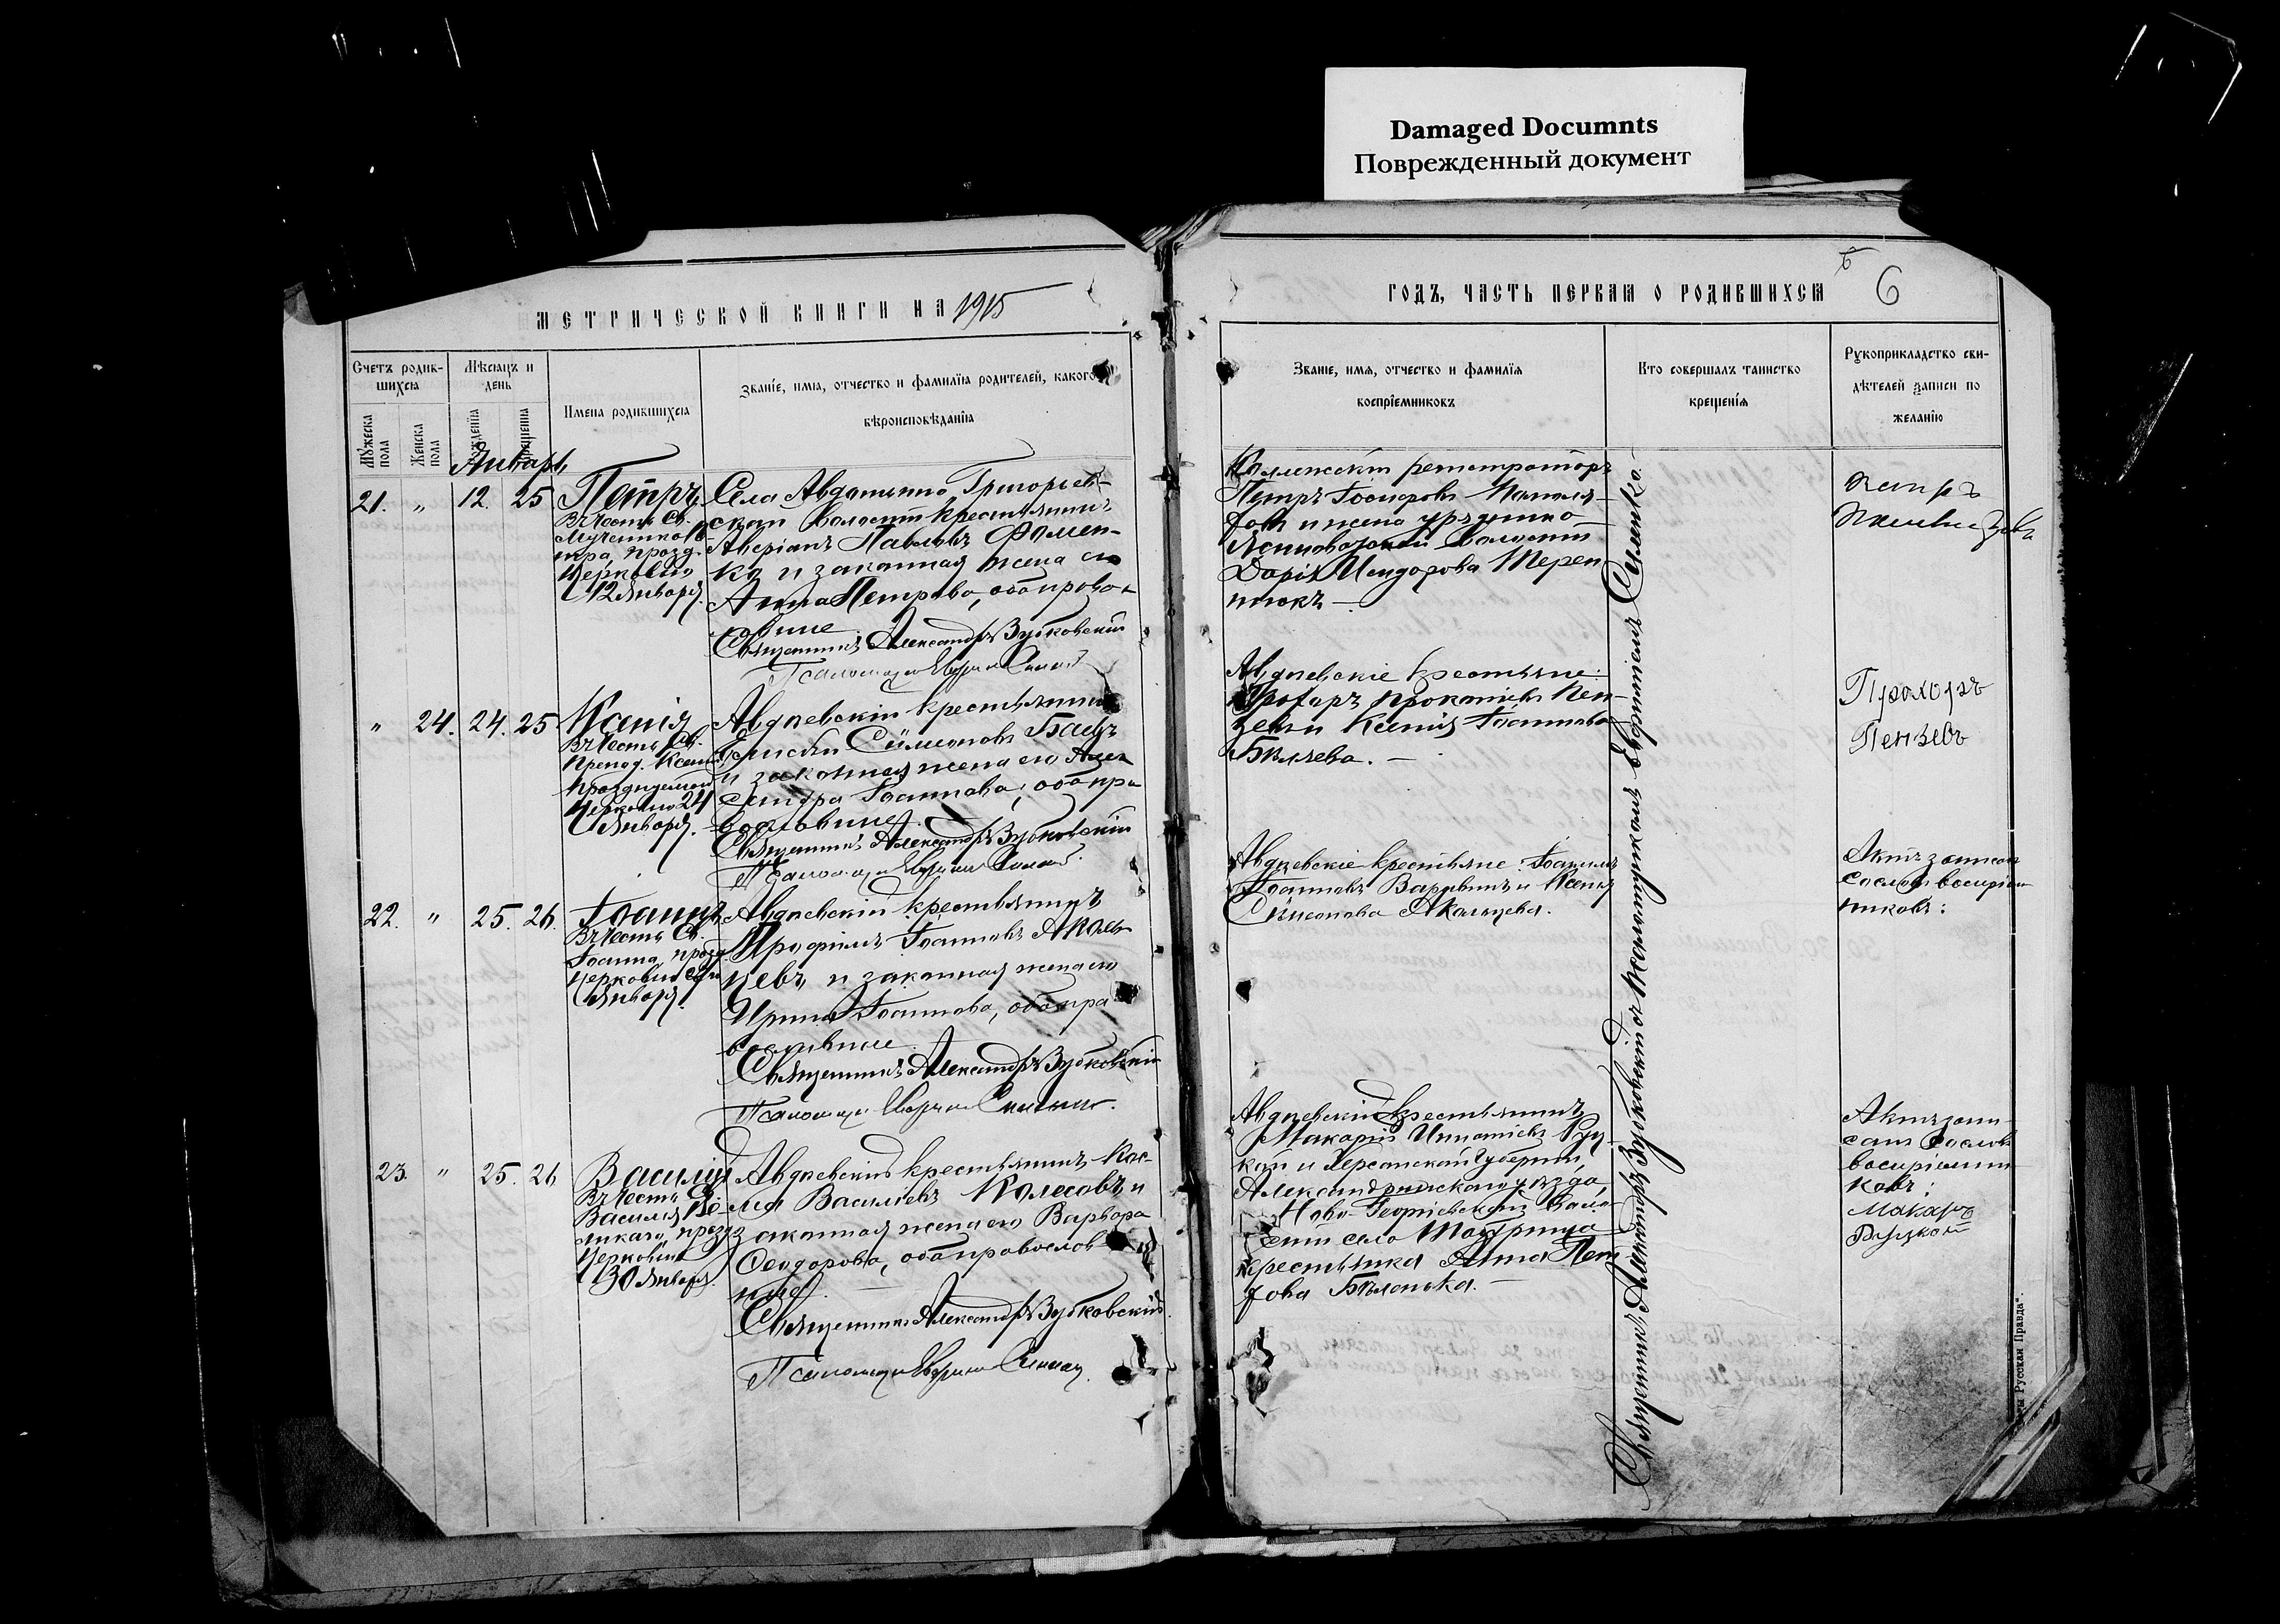 Damaged Documnts
Поврежденный документ
МЕТРИЧЕСКОЙ КНИГИ НА 1915
ГОДЪ, ЧАСТЬ ПЕРВАЯ О РОДИВШИХСЯ
6
6
Счетъ родив-
шихся
Мужеска пола
Женска пола
Мѣсяцъ и
день
рожденія
крещенія
Имена родившихся
Званіе, имя, отчество и фамилія родителей, какого
вѣроисповѣданія
Званіе, имя, отчество и фамилія
воспріемниковъ
Кто совершалъ таинство
крещенія
Рукоприкладство сви-
дѣтелей записи по
желанію
Январь
21. „ 12. 25
Петръ
Въ честь Св.
Мученика Пе-
тра, празд.
Церковію
12 Января.
Села Авдѣевки, Григорьев-
ской волости крестьянинъ
Аверіанъ Павловъ Фомен-
ко и законная жена его
Анна Петрова, оба право-
славные.
Священникъ Александръ Зубковскій
Псаломщикъ
Петръ
и жена урядника
волости
Дарія Исидорова Терен-
тюкъ —.
Петръ
„ 24. 24. 25
Ксенія
Въ честь Св.
Препод. Ксеніи
празднуемой
Церковію 24
Января.
Авдѣевскій крестьянинъ
Сѵмеоновъ
и законная жена его Алек-
сандра Іоаннова, оба пра-
вославные. —
Священникъ Александръ Зубковскій
Псаломщикъ
Авдѣевскіе крестьяне:
Прохоръ Прокопіевъ Пен-
зевъ и Ксенія Іоаннова
Бѣляева. —
Прохоръ
Пензевъ
22. „ 25. 26.
Іоаннъ
Въ честь Св.
Іоанна, празд.
Церковію
Января.
Авдѣевскій крестьянинъ
Трофимъ Іоанновъ Аколь-
цевъ и законная жена его
Ирина Іоаннова, оба пра-
вославные.
Священникъ Александръ Зубковскій
Псаломщикъ
Авдѣевскіе крестьяне:
Іоанновъ и Ксенія
Сѵмеонова Акольцева.
Актъ записан
со словъ воспріем-
никовъ:
23. „ 25. 26
Василій
Въ честь Св.
Василія Ве-
ликаго, празд.
Церковію
30 Января.
Авдѣевскій крестьянинъ Кос-
ма Василіевъ Колесовъ и
законная жена его Варвара
Ѳеодорова, оба православ-
ные. —
Священникъ Александръ Зубковскій
Псаломщикъ
Авдѣевскій крестьянинъ
Макарій Игнатіевъ Руц-
кой и Херсонской губерніи,
Александрійскаго уѣзда,
Ново-Георгіевской воло-
сти села
крестьянка Анна Пет-
рова Бѣленька. —
Актъ запи-
санъ со словъ
воспріемни-
ковъ:
Макаръ
Руцкой
Священникъ Александръ Зубковскій съ псаломщикомъ
Русская Правда".